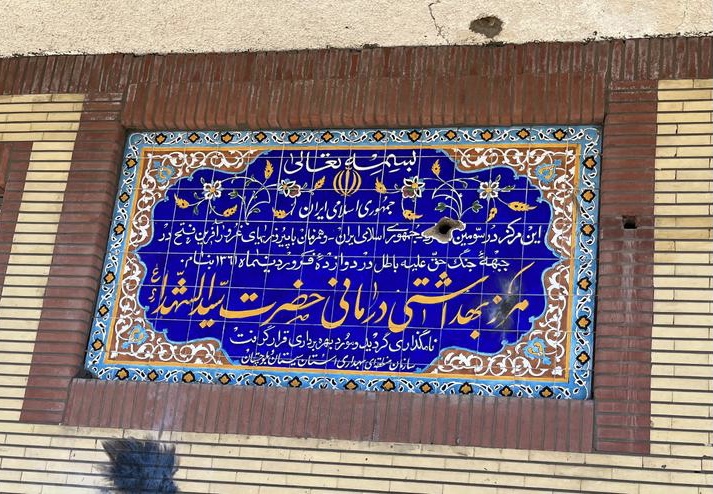 بسمه تعالی
جمهوری اسلامی ایران
این مرکز در سومین جمهوری اسلامی ایران و همزمان با پیروزیهای ظفر آفرین فتح در
جبههٔ جنگ حق علیه باطل در دوازدهٔ فروردینماه ۱۳۶۱ بنام:
مرکز بهداشتی درمانی حضرت سیدالشهداء
نامگذاری گردید و مورد بهره برداری قرار گرفت
سازمان منطقه‌ای بهداری استان سیستان و بلوچستان